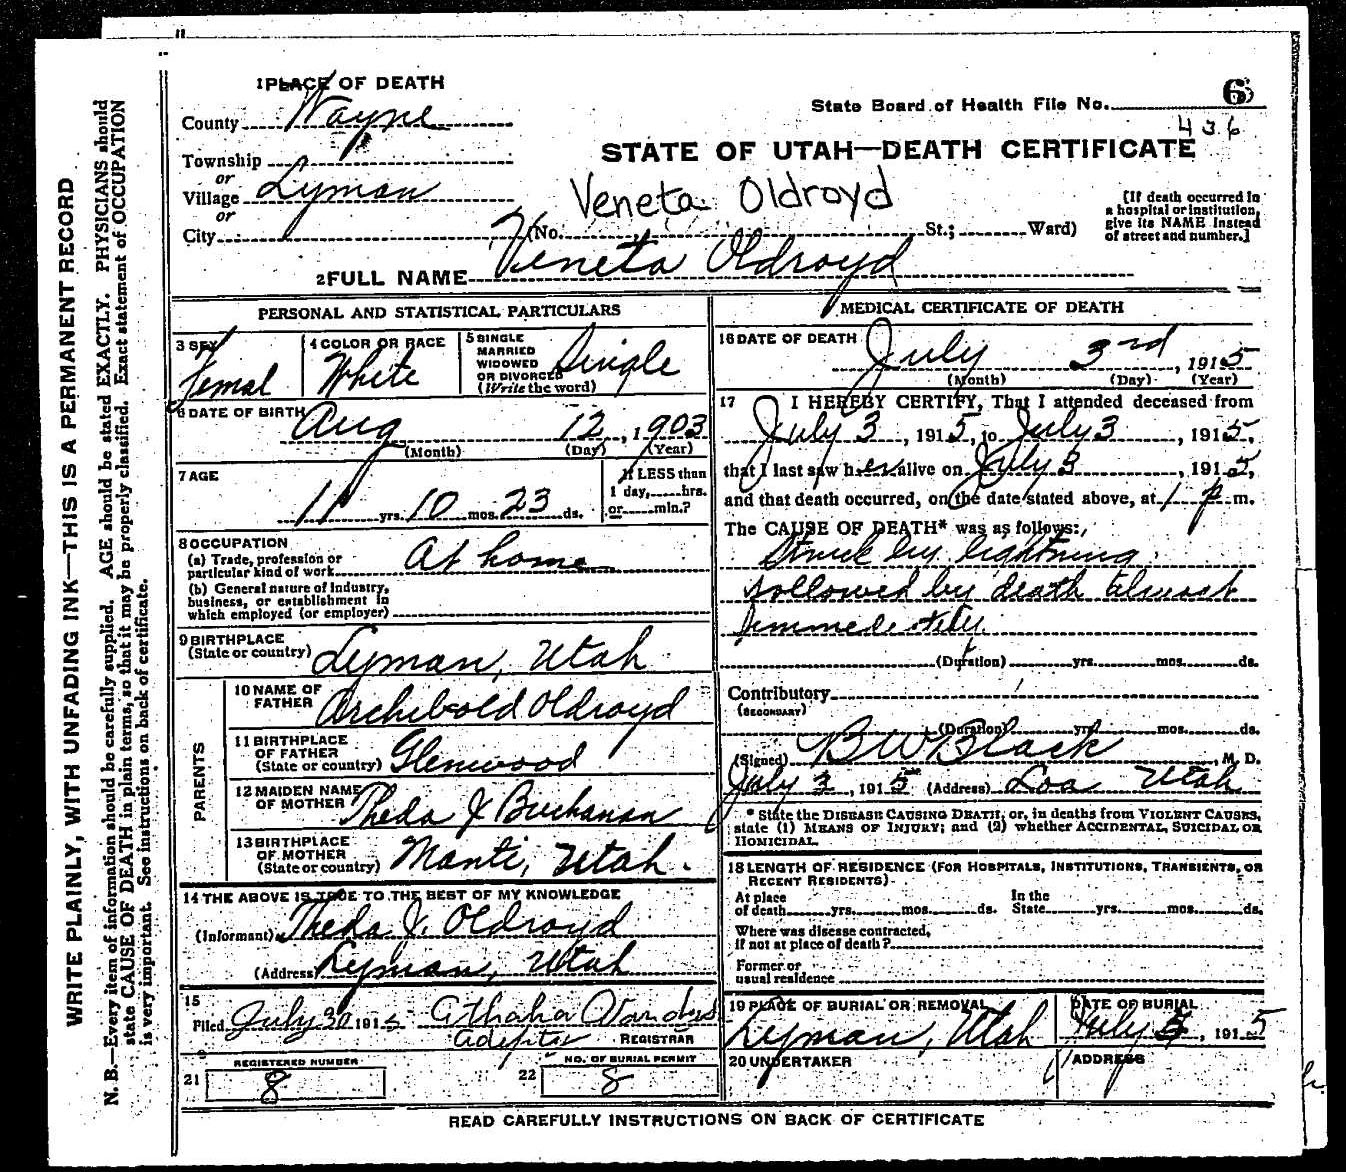 1 PLACE OF DEATH
County Wayne
State Board of Health File No. 6
436
Township
or
Village Lyman
or
City
STATE OF UTAH—DEATH CERTIFICATE
Veneta Oldroyd
(No. St.; Ward)
[If death occurred in
a hospital or institution,
give its NAME instead
of street and number.]
2 FULL NAME Veneta Oldroyd
PERSONAL AND STATISTICAL PARTICULARS
3 SEX
Femal
4 COLOR OR RACE
White
5 SINGLE
MARRIED
WIDOWED
OR DIVORCED
(Write the word)
Single
6 DATE OF BIRTH
Aug 12, 1903
(Month) (Day) (Year)
7 AGE
11 yrs. 10 mos. 23 ds.
If LESS than
1 day, hrs.
or min.?
8 OCCUPATION
(a) Trade, profession or
particular kind of work At home
(b) General nature of industry,
business, or establishment in
which employed (or employer)
9 BIRTHPLACE
(State or country) Lyman, Utah
PARENTS
10 NAME OF
FATHER Archibold Oldroyd
11 BIRTHPLACE
OF FATHER
(State or country) Glenwood
12 MAIDEN NAME
OF MOTHER Theda J Buchanan
13 BIRTHPLACE
OF MOTHER
(State or country) Manti, Utah.
14 THE ABOVE IS TRUE TO THE BEST OF MY KNOWLEDGE
(Informant) Theda J. Oldroyd
(Address Lyman, Utah
15
Filed July 30 1915
REGISTRAR
REGISTERED NUMBER
21 8
NO. OF BURIAL PERMIT
22 8
MEDICAL CERTIFICATE OF DEATH
16 DATE OF DEATH
July 3rd, 1915
(Month) (Day) (Year)
17 I HEREBY CERTIFY, That I attended deceased from
July 3, 1915, to July 3, 1915,
that I last saw her alive on July 3, 1915,
and that death occurred, on the date stated above, at 1 p m.
The CAUSE OF DEATH* was as follows:
Struck by lightning
followed by death almost
(Duration) yrs. mos. ds.
Contributory
(SECONDARY)
(Duration) yrs. mos. ds.
(Signed) B W Black, M. D.
July 3, 1915 (Address) Loa Utah
* State the DISEASE CAUSING DEATH; or, in deaths from VIOLENT CAUSES,
state (1) MEANS OF INJURY; and (2) whether ACCIDENTAL, SUICIDAL OR
HOMICIDAL.
18 LENGTH OF RESIDENCE (FOR HOSPITALS, INSTITUTIONS, TRANSIENTS, OR
RECENT RESIDENTS)
At place
of death yrs. mos. ds.
In the
State yrs. mos. ds.
Where was disease contracted,
if not at place of death?
Former or
usual residence
19 PLACE OF BURIAL OR REMOVAL
Lyman, Utah
DATE OF BURIAL
July 5, 1915
20 UNDERTAKER
ADDRESS
READ CAREFULLY INSTRUCTIONS ON BACK OF CERTIFICATE
WRITE PLAINLY, WITH UNFADING INK—THIS IS A PERMANENT RECORD
N. B.—Every item of information should be carefully supplied. AGE should be stated EXACTLY. PHYSICIANS should
state CAUSE OF DEATH in plain terms, so that it may be properly classified. Exact statement of OCCUPATION
is very important. See instructions on back of certificate.